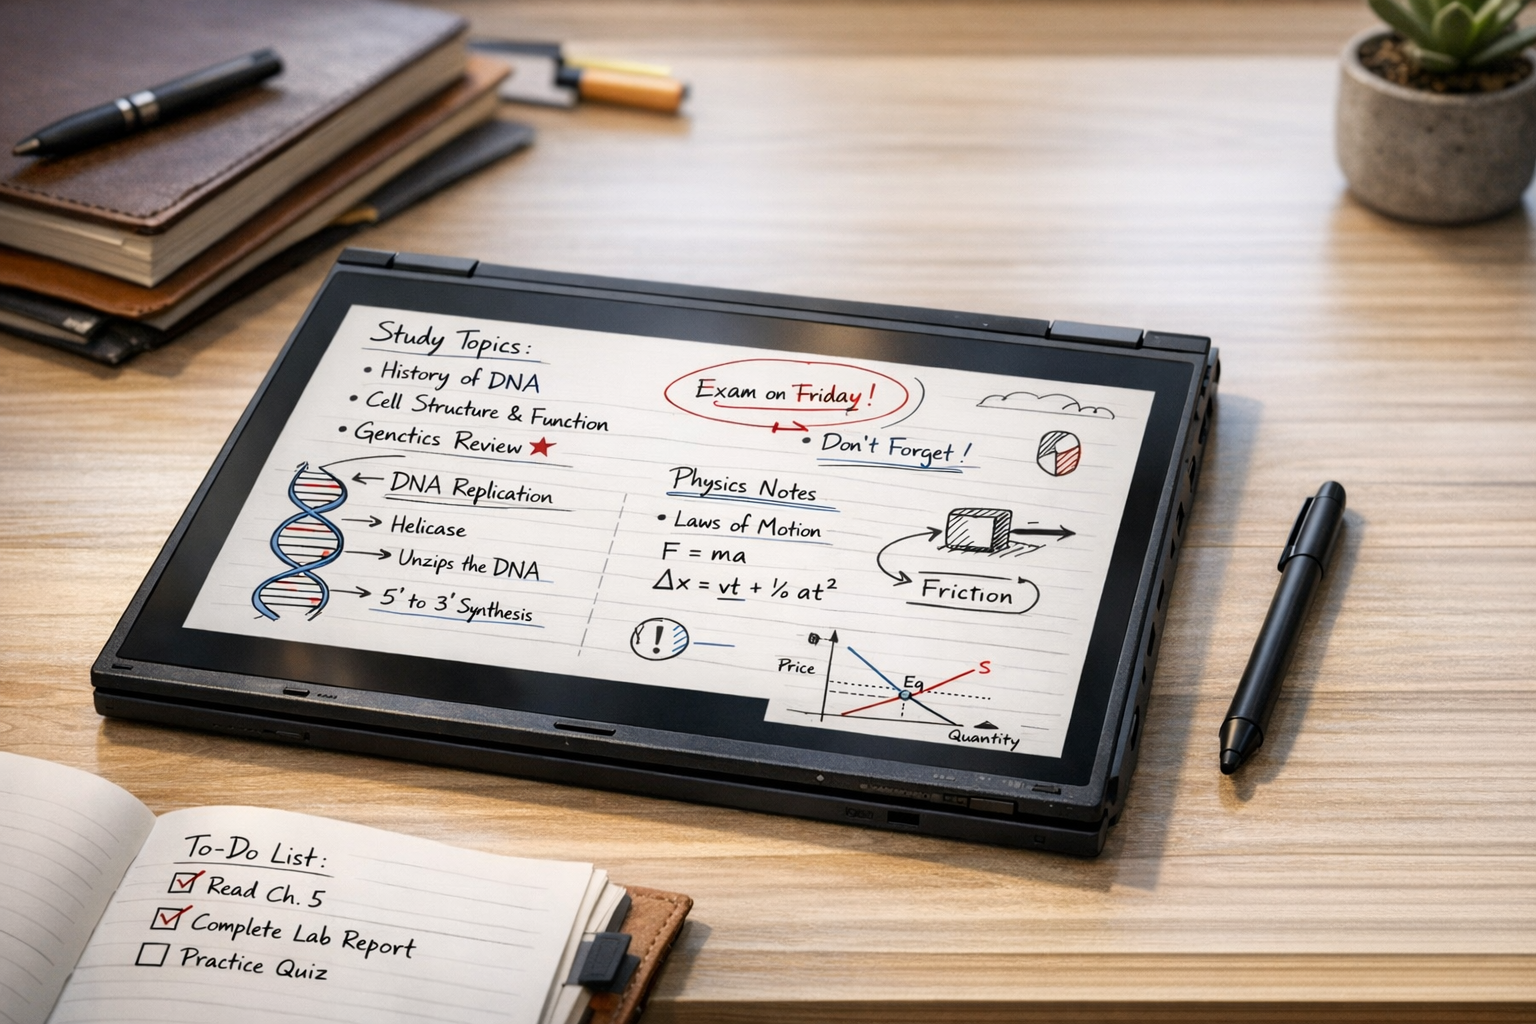 Study Topics:
• History of DNA
• Cell Structure & Function
• Genctics Review ★
DNA Replication
Helicase
Unzips the DNA
5' to 3' Synthesis
Exam on Friday!
• Don't Forget!
Physics Notes
• Laws of Motion
F = ma
Δx = vt + ½ at²
Friction
!
Price
S
Eq
Quantity
To-Do List:
☑ Read Ch. 5
☑ Complete Lab Report
☐ Practice Quiz